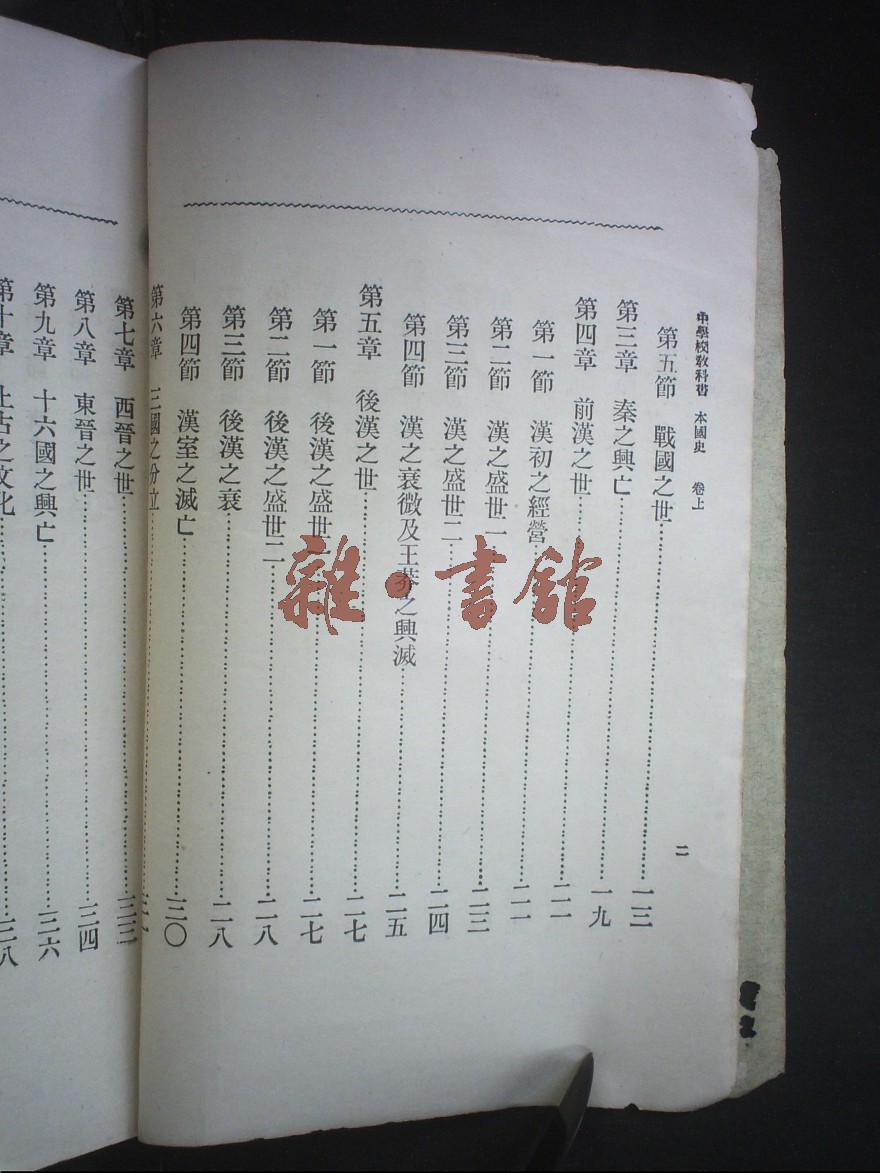 中學校教科書 本國史 卷上 二
第五節 戰國之世……一三
第三章 秦之興亡……一九
第四章 前漢之世……二一
第一節 漢初之經營……二一
第二節 漢之盛世一……二三
第三節 漢之盛世二……二四
第四節 漢之衰微及王莽之興滅……二五
第五章 後漢之世……二七
第一節 後漢之盛世……二七
第二節 後漢之盛世二……二八
第三節 後漢之衰……二八
第四節 漢室之滅亡……三〇
第六章 三國之分立……
第七章 西晉之世……三三
第八章 東晉之世……三四
第九章 十六國之興亡……三六
第十章 上古之文化……三八
雜·書館